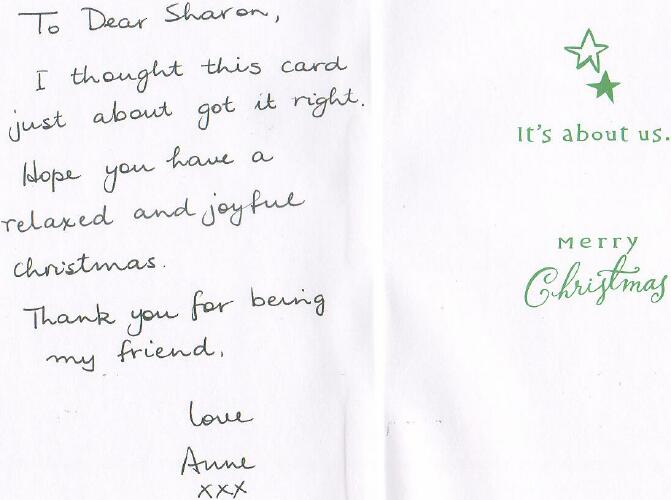 To Dear Sharon,
I thought this card
just about got it right.
Hope you have a
relaxed and joyful
christmas.
Thank you for being
my friend.
love
Anne
xxx
It's about us.
Merry
Christmas